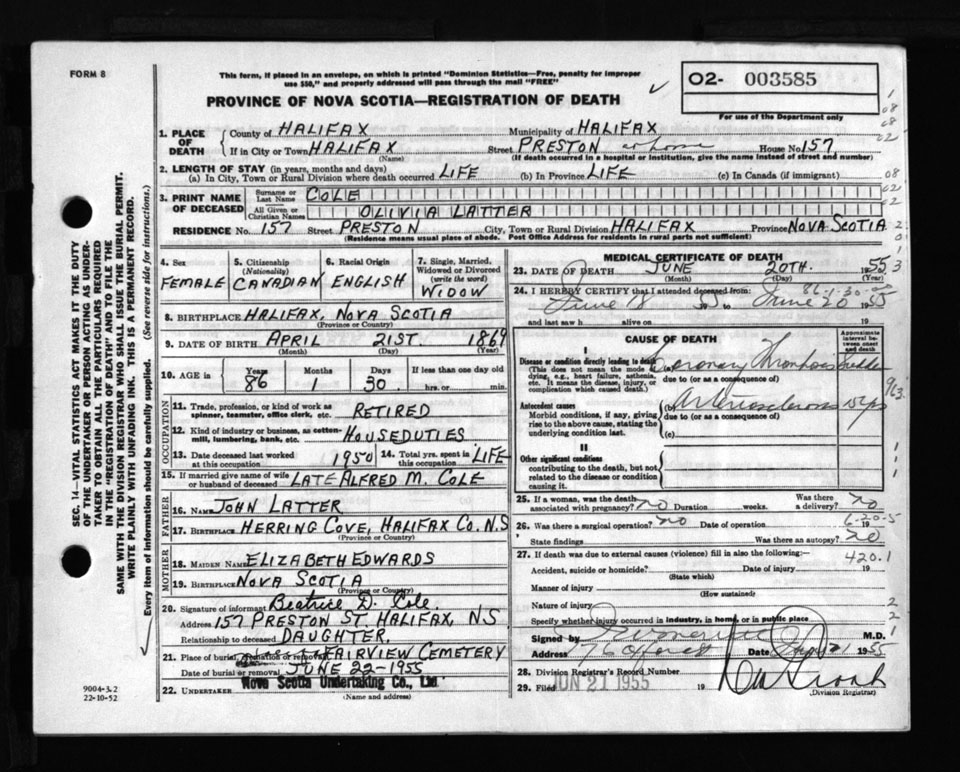 FORM 8
This form, if placed in an envelope, on which is printed "Dominion Statistics—Free, penalty for improper
use $50," and properly addressed will pass through the mail "FREE"
PROVINCE OF NOVA SCOTIA—REGISTRATION OF DEATH
O2- 003585
For use of the Department only
1. PLACE OF DEATH
County of HALIFAX Municipality of HALIFAX
If in City or Town HALIFAX Street PRESTON at home House No 157
(Name) (If death occurred in a hospital or institution, give the name instead of street and number)
2. LENGTH OF STAY (in years, months and days)
(a) In City, Town or Rural Division where death occurred LIFE (b) In Province LIFE (c) In Canada (if immigrant)
3. PRINT NAME OF DECEASED
Surname or Last Name COLE
All Given or Christian Names OLIVIA LATTER
RESIDENCE No. 157 Street PRESTON City, Town or Rural Division HALIFAX Province NOVA SCOTIA
(Residence means usual place of abode. Post Office Address for residents in rural parts not sufficient)
4. Sex FEMALE
5. Citizenship (Nationality) CANADIAN
6. Racial Origin ENGLISH
7. Single, Married, Widowed or Divorced (write the word) WIDOW
8. BIRTHPLACE HALIFAX, NOVA SCOTIA
(Province or Country)
9. DATE OF BIRTH APRIL 21ST. 1869
(Month) (Day) (Year)
10. AGE in Years 86 Months 1 Days 30 If less than one day old
hrs. or min.
OCCUPATION
11. Trade, profession, or kind of work as
spinner, teamster, office clerk, etc. RETIRED
12. Kind of industry or business, as cotton-
mill, lumbering, bank, etc. HOUSEDUTIES
13. Date deceased last worked at this occupation 1950 14. Total yrs. spent in this occupation LIFE
15. If married give name of wife
or husband of deceased LATE ALFRED M. COLE
FATHER
16. NAME JOHN LATTER
17. BIRTHPLACE HERRING COVE, HALIFAX CO. N.S
MOTHER
18. MAIDEN NAME ELIZABETH EDWARDS
19. BIRTHPLACE NOVA SCOTIA
(Province or Country)
20. Signature of informant Beatrice D. Cole.
Address 157 PRESTON ST. HALIFAX, N.S
Relationship to deceased DAUGHTER,
21. Place of burial, cremation or removal FAIRVIEW CEMETERY
Date of burial or removal JUNE 22-1955
22. UNDERTAKER Nova Scotia Undertaking Co., Ltd.
(Name and address)
MEDICAL CERTIFICATE OF DEATH
23. DATE OF DEATH JUNE 20TH. 1955
(Month) (Day) (Year)
86-1-30
24. I HEREBY CERTIFY that I attended deceased from:
June 18 55 to June 20 1955
and last saw h alive on 19
CAUSE OF DEATH
Approximate interval between onset and death
I
Disease or condition directly leading to death
(This does not mean the mode of dying, e.g., heart failure, asthenia, etc. It means the disease, injury, or complication which caused death.)
(a) Coronary Thrombosis
due to (or as a consequence of)
Antecedent causes
Morbid conditions, if any, giving rise to the above cause, stating the underlying condition last.
(b) Arteriosclerosis
due to (or as a consequence of)
(c)
II
Other significant conditions
contributing to the death, but not related to the disease or condition causing it.
25. If a woman, was the death associated with pregnancy? no Duration weeks. Was there a delivery? no
6-20-5
26. Was there a surgical operation? no Date of operation 19
State findings Was there an autopsy? no
27. If death was due to external causes (violence) fill in also the following:—
420.1
Accident, suicide or homicide? Date of injury 19
(State which)
Manner of injury
(How sustained)
Nature of injury
Specify whether injury occurred in industry, in home, or in public place
Signed by M.D.
Address 76 Date 21 1955
28. Division Registrar's Record Number
29. Filed JUN 21 1955 19
(Division Registrar)
SEC. 14—VITAL STATISTICS ACT MAKES IT THE DUTY
OF THE UNDERTAKER OR PERSON ACTING AS UNDER-
TAKER TO OBTAIN ALL THE PARTICULARS REQUIRED
IN THE "REGISTRATION OF DEATH" AND TO FILE THE
SAME WITH THE DIVISION REGISTRAR WHO SHALL ISSUE THE BURIAL PERMIT.
WRITE PLAINLY WITH UNFADING INK. THIS IS A PERMANENT RECORD.
Every item of information should be carefully supplied. (See reverse side for instructions.)
9004-3.2
22-10-52